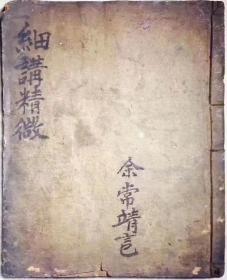 細講精微
余常靖言